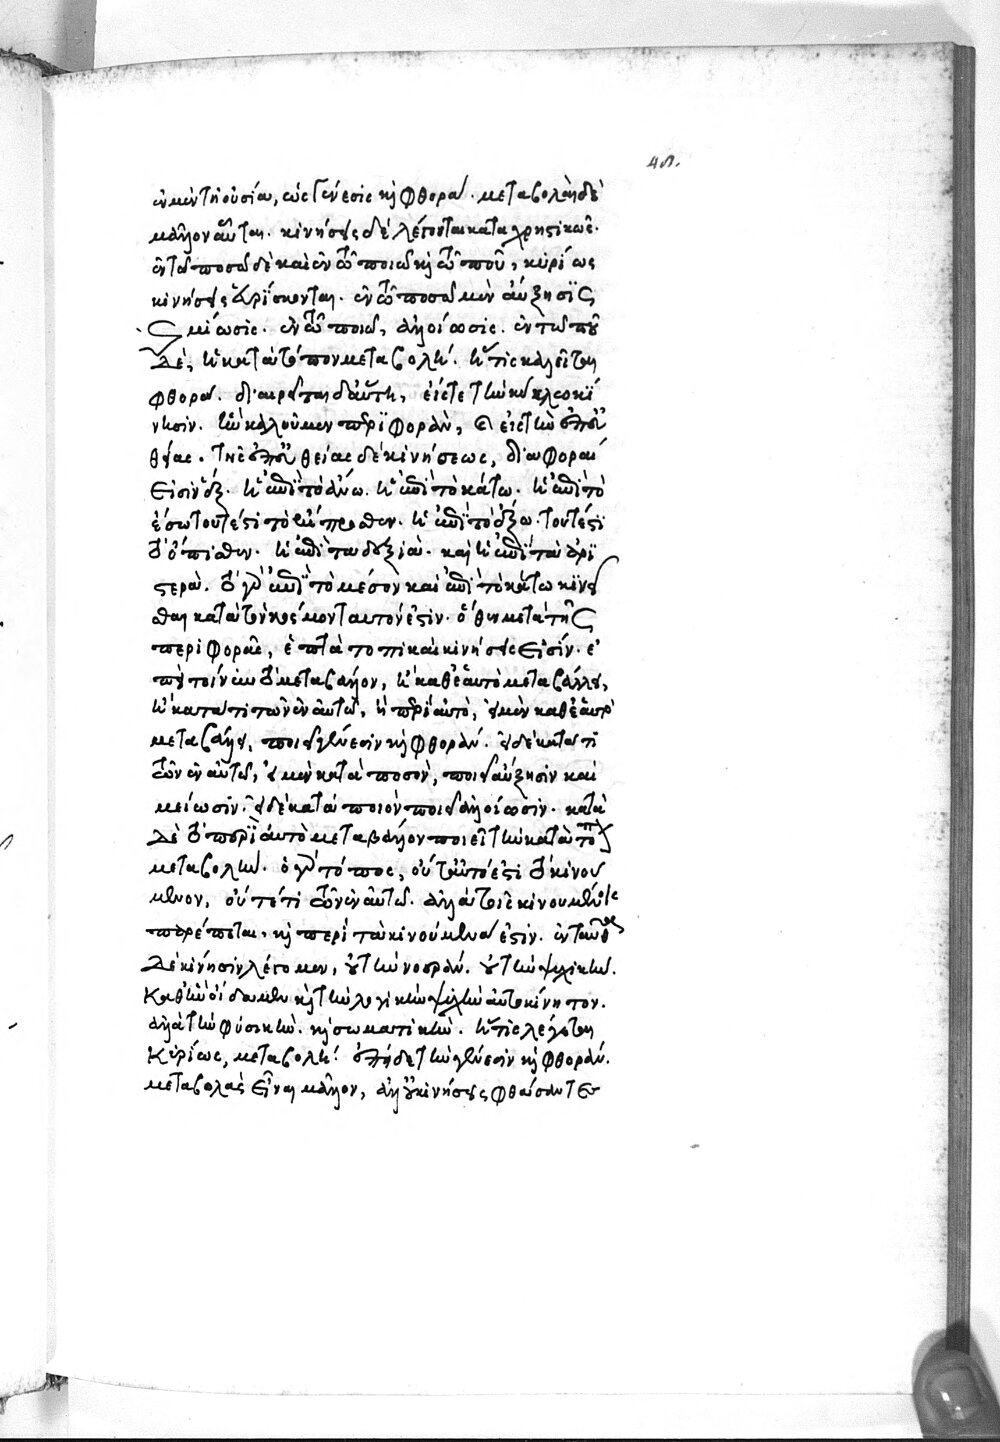 48.
ἐν μὲν τῇ οὐσίᾳ, ὡς γένεσις καὶ φθορά. μεταβολαὶ δὲ
μᾶλλον αὗται. κινήσεις δὲ λέγονται καταχρηστικῶς.
ἐν τῶ ποσῶ δὲ καὶ ἐν τῶ ποιῶ καὶ τῶ ποῦ, κυρίως
κινήσεις εὑρίσκονται. ἐν τῶ ποσῶ μὲν αὔξησις
μείωσις. ἐν τῶ ποιῶ, ἀλλοίωσις. ἐν τῶ ποῦ
δὲ, ἡ κατὰ τόπον μεταβολή. ἥτις καλεῖται
φθορά. διαιρεῖται δ' αὕτη, εἴς τε τὴν κυκλικὴν κί
νησιν. ἣν καλοῦμεν περιφορὰν, καὶ εἰς τὴν ἐπ' εὐ
θείας. τῆς ἐπ' εὐθείας δὲ κινήσεως, διαφοραί
εἰσὶν ἕξ. ἡ ἐπὶ τὸ ἄνω. ἡ ἐπὶ τὸ κάτω. ἡ ἐπὶ τὸ
ἔσω τουτέστι τὸ ἔμπροσθεν. ἡ ἐπὶ τὸ ἔξω. τουτέστι
τὸ ὄπισθεν. ἡ ἐπὶ τὰ δεξιὰ. καὶ ἡ ἐπὶ τὰ ἀρι
στερὰ. τὸ γὰρ ἐπὶ τὸ μέσον καὶ ἐπὶ τὸ κάτω κινεῖ
σθαι κατὰ τὸν ταυτόν ἐστιν. ὅθεν μετὰ τῆς
περιφορᾶς, ἑπτὰ τοπικαὶ κινήσεις εἰσίν. ἐ
πεὶ τοίνυν τὸ μεταβάλλον, ἢ καθ' ἑαυτὸ μεταβάλλει,
ἢ κατά τι τῶν ἐν αὐτῶ, ἢ περὶ αὐτὸ, εἰ μὲν καθ' ἑαυτὸ
μεταβάλλει, ποιεῖ γένεσιν καὶ φθοράν. εἰ δὲ κατά τι
τῶν ἐν αὐτῶ, εἰ μὲν κατὰ ποσὸν, ποιεῖ αὔξησιν καὶ
μείωσιν. εἰ δὲ κατὰ ποιὸν ποιεῖ ἀλλοίωσιν. κατὰ
δὲ τὸ περὶ αὐτὸ μεταβάλλον ποιεῖ τὴν κατὰ τόπον
μεταβολήν. ὁ γὰρ τόπος, οὔτ' αὐτό ἐστι τὸ κινού
μενον, οὔτέ τι τῶν ἐν αὐτῶ. ἀλλὰ τοῖς κινουμένοις
παρέπεται. καὶ περὶ τὰ κινούμενά ἐστιν. ἐνταῦθα
δὲ κίνησιν λέγομεν, οὐ τὴν νοεράν. οὐ τὴν ψυχικήν.
καθ' ἣν οἴδαμεν καὶ τὴν λογικὴν ψυχὴν αὐτοκίνητον.
ἀλλὰ τὴν φυσικὴν. καὶ σωματικὴν. ἥτις λέγεται
κυρίως, μεταβολή. ἐπεὶ δὲ τὴν γένεσιν καὶ φθοράν.
μεταβολὰς εἶναι μᾶλλον, ἀλλ' οὐ κινήσεις φθάσαντες